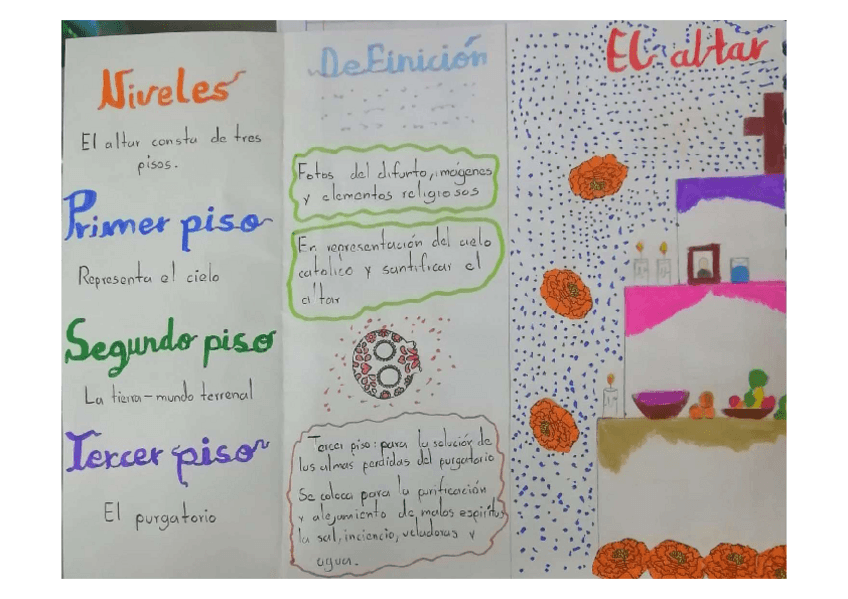 Niveles
El altar consta de tres
pisos.
Primer piso
Representa el cielo
Segundo piso
La tierra - mundo terrenal
Tercer piso
El purgatorio
Definición
Fotos del difunto, imágenes
y elementos religiosos
En representación del cielo
católico y santificar el
altar
Tercer piso: para la solución de
las almas perdidas del purgatorio
Se coloca para la purificación
y alejamiento de malos espíritus
la sal, inciencio, veladoras y
agua.
El altar